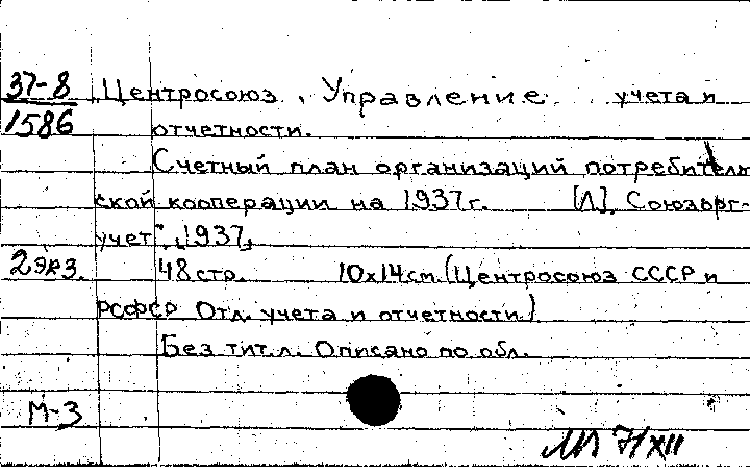 37-8 Центросоюз. Управление учета и
1586 отчетности.
Счетный план организаций потребитель
ской кооперации на 1937г. [Л], Союзорг-
учет", 1937,
2экз. 48 стр. 10х14см. (Центросоюз СССР и
РСФСР Отд. учета и отчетности)
Без тит.л. Описано по обл.
М-3
71 XII